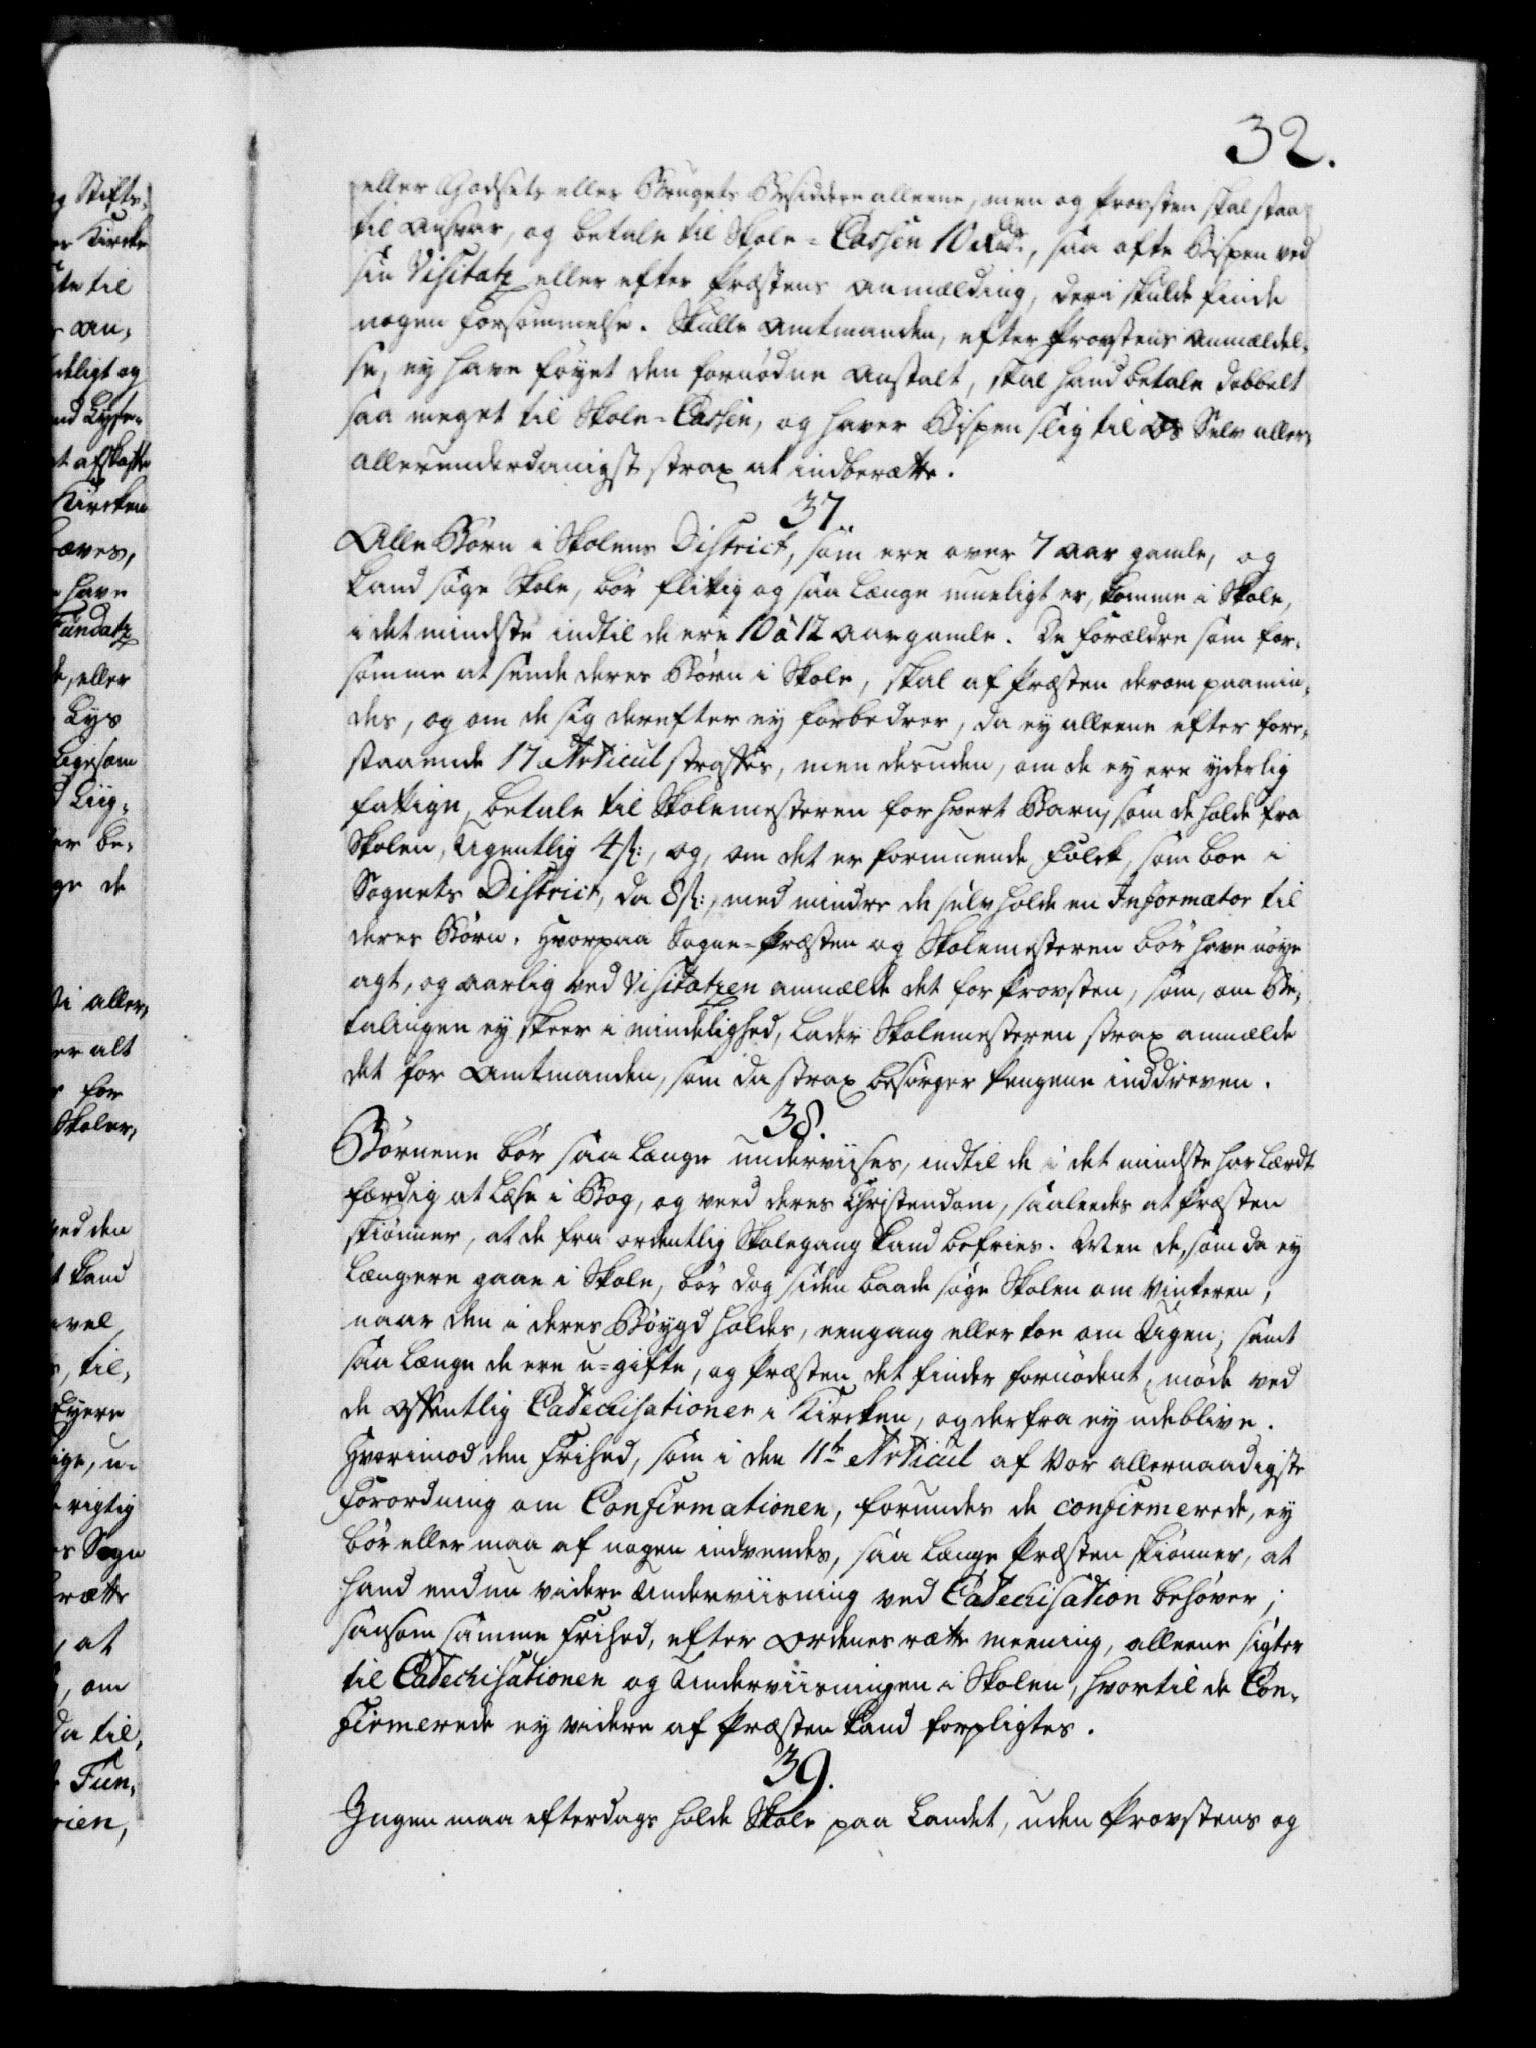 32.
eller Godsets eller Brugets Besiddere alleene, men og Provsten skal staa
til Ansvar, og betale til Skole-Cassen 10 Rdr., saa ofte Bispen ved
sin Visitatz eller efter Præstens Anmælding, deri skulde finde
nogen forsømmelse. Skulle Amtmanden, efter Provstens Anmældel-
se, ey have føyet den fornødne Anstalt, skal hand betale dobbelt
saa meget til Skole-Cassen, og haver Bispen slig til Os Selv aller-
allerunderdanigst strax at indberætte.
37.
Alle Børn i Skolens District, som ere over 7 Aar gamle, og
kand søge Skole, bør flittig og saa længe mueligt er, komme i Skole,
i det mindste indtil de ere 10 à 12 Aar gamle. De Forældre som for-
sømme at sende deres Børn i Skole, skal af Præsten derom paamin-
des, og om de sig derefter ey forbedrer, da ey alleene efter fore-
staaende 17 Articul straffes, men desuden, om de ey ere yderlig
fattige, betale til Skolemesteren for hvert Barn, som de holde fra
Skolen, Ugentlig 4 s:, og, om det er formuende Folck, som boe i
Sognets District, da 8 s:, med mindre de selv holde en Informator til
deres Børn. Hvorpaa Sogne-Præsten og Skolemesteren bør have nøye
agt, og aarlig ved Visitatzen anmælde det for Provsten, som, om Be-
talingen ey skeer i mindelighed, lader Skolemesteren strax anmælde
det for Amtmanden, som da strax besørger Pengene inddreven.
38.
Børnene bør saa længe underviises, indtil de i det mindste har lærdt
færdig at læse i Bog, og veed deres Christendom, saaleedes at Præsten
skiønner, at de fra ordentlig Skolegang kand befries. Men de, som da ey
længere gaae i Skole, bør dog siden baade søge Skolen om Vinteren,
naar den i deres Bøygd holdes, eengang eller toe om Ugen, samt
saa længe de ere u-gifte, og Præsten det finder fornødent, møde ved
de offentlig Catechisationer i Kircken, og derfra ey udeblive.
Hvorimod den Frihed, som i den 11te Articul af Vor allernaadigste
Forordning om Confirmationen, forundes de confirmerede, ey
bør eller maa af nogen indvendes, saa længe Præsten skiønner, at
hand endnu videre Underviisning ved Catechisation behøver;
saasom samme Frihed, efter Ordenes rætte meening, alleene sigter
til Catechisationen og Underviisningen i Skolen, hvortil de Con-
firmerede ey videre af Præsten kand forpligtes.
39.
Ingen maa efterdags holde Skole paa Landet, uden Provstens og